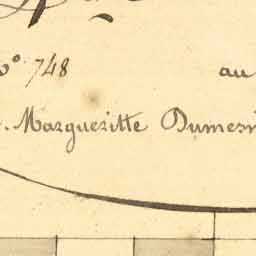 N° 748 au
Margueritte Dumesn